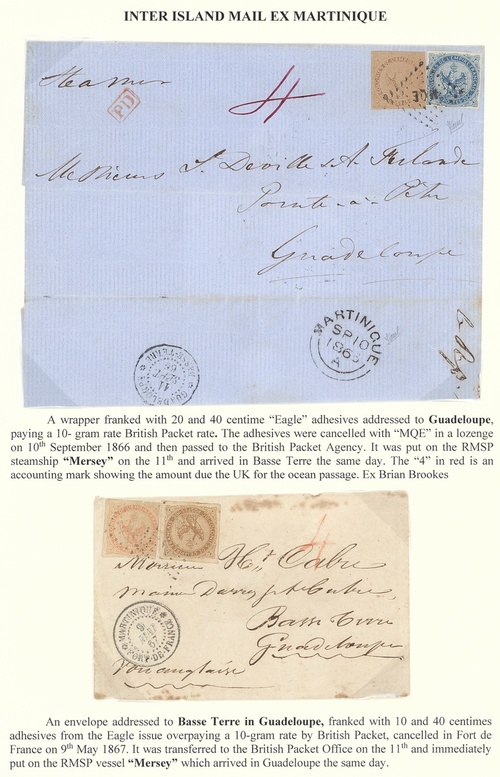 INTER ISLAND MAIL EX MARTINIQUE
Steamer
PD
4
MQE
Messieurs S. Deville & A. Ferlande
Pointe-à-Pitre
Guadeloupe
MARTINIQUE
SP 10
A
A wrapper franked with 20 and 40 centime “Eagle” adhesives addressed to Guadeloupe,
paying a 10- gram rate British Packet rate. The adhesives were cancelled with “MQE” in a lozenge
on 10th September 1866 and then passed to the British Packet Agency. It was put on the RMSP
steamship “Mersey” on the 11th and arrived in Basse Terre the same day. The “4” in red is an
accounting mark showing the amount due the UK for the ocean passage. Ex Brian Brookes
4
Monsieur Hte Cabre
maison
Basse Terre
Guadeloupe
Voie anglaise
MARTINIQUE
FORT-DE-FRANCE
An envelope addressed to Basse Terre in Guadeloupe, franked with 10 and 40 centimes
adhesives from the Eagle issue overpaying a 10-gram rate by British Packet, cancelled in Fort
de France on 9th May 1867. It was transferred to the British Packet Office on the 11th and immediately
put on the RMSP vessel “Mersey” which arrived in Guadeloupe the same day.